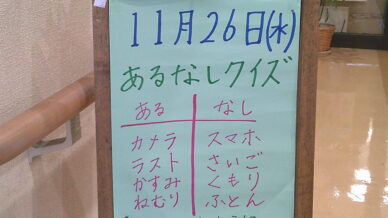 11月26日(水)
あるなしクイズ
ある なし
カメラ スマホ
ラスト さいご
かすみ くもり
ねむり ふとん